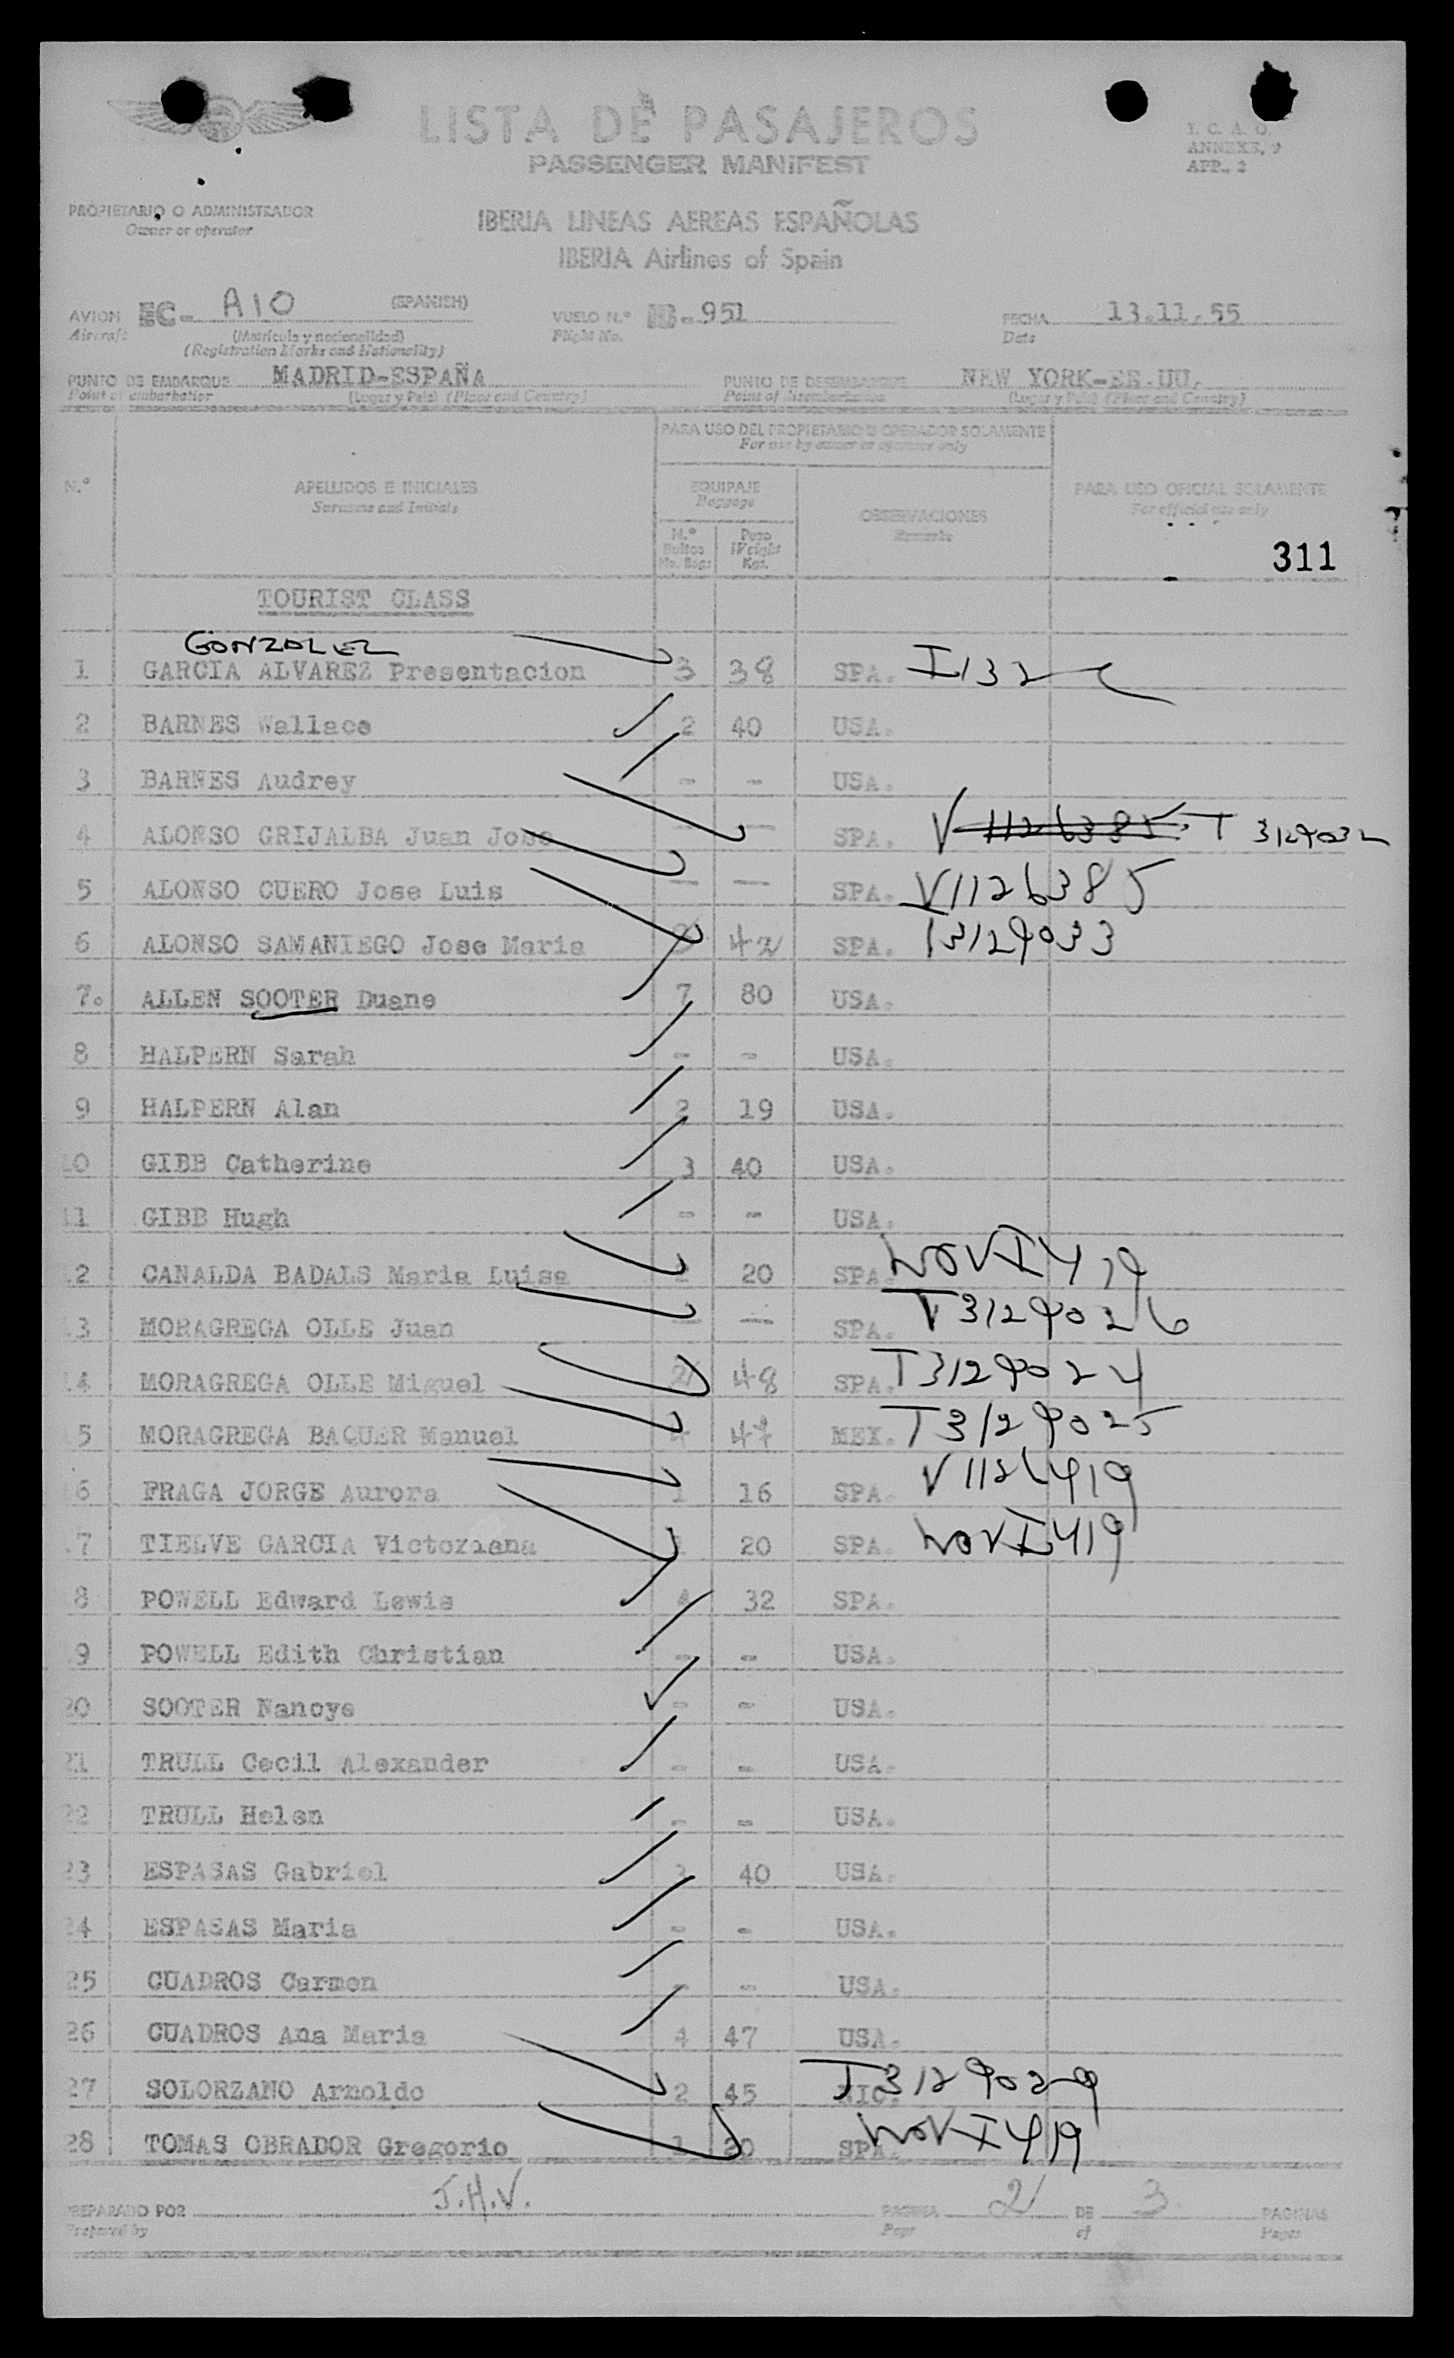 LISTA DE PASAJEROS
PASSENGER MANIFEST
I. C. A. O.
ANNEXE, 9
APP., 2
PROPIETARIO O ADMINISTRADOR
Owner or operator
IBERIA LINEAS AEREAS ESPAÑOLAS
IBERIA Airlines of Spain
AVION EC- A10 (SPANISH) VUELO N.º IB-951 FECHA 13.11.55
Aircraft (Matrícula y nacionalidad) Flight No. Date
(Registration Marks and Nationality)
PUNTO DE EMBARQUE MADRID-ESPAÑA PUNTO DE DESEMBARQUE NEW YORK-EE.UU.
Point of embarkation (Lugar y País) (Place and Country) Point of disembarkation (Lugar y País) (Place and Country)
PARA USO DEL PROPIETARIO U OPERADOR SOLAMENTE
For use by owner or operator only
N.º APELLIDOS E INICIALES EQUIPAJE OBSERVACIONES PARA USO OFICIAL SOLAMENTE
Surname and Initials Baggage Remarks For official use only
N.º Bultos Peso
No. Bags Weight Kgs.
311
TOURIST CLASS
GONZOLEZ
1 GARCIA ALVAREZ Presentacion 3 38 SPA. I132
2 BARNES Wallace 2 40 USA.
3 BARNES Audrey - - USA.
4 ALONSO GRIJALBA Juan Jose — — SPA. V 1126385 T 3129032
5 ALONSO CUERO Jose Luis — — SPA. V1126385
6 ALONSO SAMANIEGO Jose Maria 42 SPA. T3129033
7. ALLEN SOOTER Duane 7 80 USA.
8 HALPERN Sarah - - USA.
9 HALPERN Alan 2 19 USA.
10 GIBB Catherine 3 40 USA.
11 GIBB Hugh - - USA.
12 CANALDA BADALS Maria Luisa 20 SPA. NOV I 419
13 MORAGREGA OLLE Juan — — SPA. T3129026
14 MORAGREGA OLLE Miguel 2 48 SPA. T3129024
15 MORAGREGA BAQUER Manuel 47 MEX. T3129025
16 FRAGA JORGE Aurora 1 16 SPA. V1126419
17 TIELVE GARCIA Victoriana 20 SPA. NOV I 419
18 POWELL Edward Lewis 4 32 SPA.
19 POWELL Edith Christian - - USA.
20 SOOTER Nancye - - USA.
21 TRULL Cecil Alexander - - USA.
22 TRULL Helen - - USA.
23 ESPASAS Gabriel 3 40 USA.
24 ESPASAS Maria - - USA.
25 CUADROS Carmen - - USA.
26 CUADROS Ana Maria 4 47 USA.
27 SOLORZANO Arnoldo 2 45 NIC. T3129029
28 TOMAS OBRADOR Gregorio 1 20 SPA. NOV I 419
PREPARADO POR J.H.V. PAGINA 2 DE 3 PAGINAS
Prepared by Page of Pages